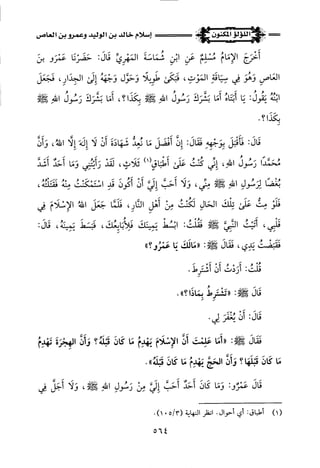 اللؤلؤ المكنون
إسلام خالد بن الوليد وعمرو بن العاص
أَخْرَجَ الإِمَامُ مُسْلِمٌ عَنِ ابْنِ شُمَاسَةَ المَهْرِيِّ قَالَ: حَضَرْنَا عَمْرَو بنَ
العَاصِ وَهُوَ فِي سِيَاقَةِ المَوْتِ، فَبَكَى طَوِيلًا وَحَوَّلَ وَجْهَهُ إِلَى الجِدَارِ، فَجَعَلَ
ابْنُهُ يَقُولُ: يَا أَبَتَاهُ أَمَا بَشَّرَكَ رَسُولُ اللهِ ﷺ بِكَذَا؟، أَمَا بَشَّرَكَ رَسُولُ اللهِ ﷺ
بِكَذَا؟.
قَالَ: فَأَقْبَلَ بِوَجْهِهِ فَقَالَ: إِنَّ أَفْضَلَ مَا نُعِدُّ شَهَادَةُ أَنْ لَا إِلَهَ إِلَّا اللهُ، وَأَنَّ
مُحَمَّدًا رَسُولُ اللهِ، إِنِّي كُنْتُ عَلَى أَطْبَاقٍ(١) ثَلَاثٍ، لَقَدْ رَأَيْتُنِي وَمَا أَحَدٌ أَشَدَّ
بُغْضًا لِرَسُولِ اللهِ ﷺ مِنِّي، وَلَا أَحَبَّ إِلَيَّ أَنْ أَكُونَ قَدِ اسْتَمْكَنْتُ مِنْهُ فَقَتَلْتُهُ،
فَلَوْ مِتُّ عَلَى تِلْكَ الحَالِ لَكُنْتُ مِنْ أَهْلِ النَّارِ، فَلَمَّا جَعَلَ اللهُ الإِسْلَامَ فِي
قَلْبِي، أَتَيْتُ النَّبِيَّ ﷺ فَقُلْتُ: ابْسُطْ يَمِينَكَ فَلِأُبَايِعُكَ، فَبَسَطَ يَمِينَهُ، قَالَ:
فَقَبَضْتُ يَدِي، فَقَالَ ﷺ: «مَالَكَ يَا عَمْرُو؟»
قُلْتُ: أَرَدْتُ أَنْ أَشْتَرِطَ.
قَالَ ﷺ: «تَشْتَرِطُ بِمَاذَا؟».
قَالَ: أَنْ يُغْفَرَ لِي.
فَقَالَ ﷺ: «أَمَا عَلِمْتَ أَنَّ الإِسْلَامَ يَهْدِمُ مَا كَانَ قَبْلَهُ؟ وَأَنَّ الهِجْرَةَ تَهْدِمُ
مَا كَانَ قَبْلَهَا؟ وَأَنَّ الحَجَّ يَهْدِمُ مَا كَانَ قَبْلَهُ».
قَالَ عَمْرٌو: وَمَا كَانَ أَحَدٌ أَحَبَّ إِلَيَّ مِنْ رَسُولِ اللهِ ﷺ، وَلَا أَجَلَّ فِي
(١) أطباق: أي أحوال. انظر النهاية (٣/ ١٠٥).
٥٦٤